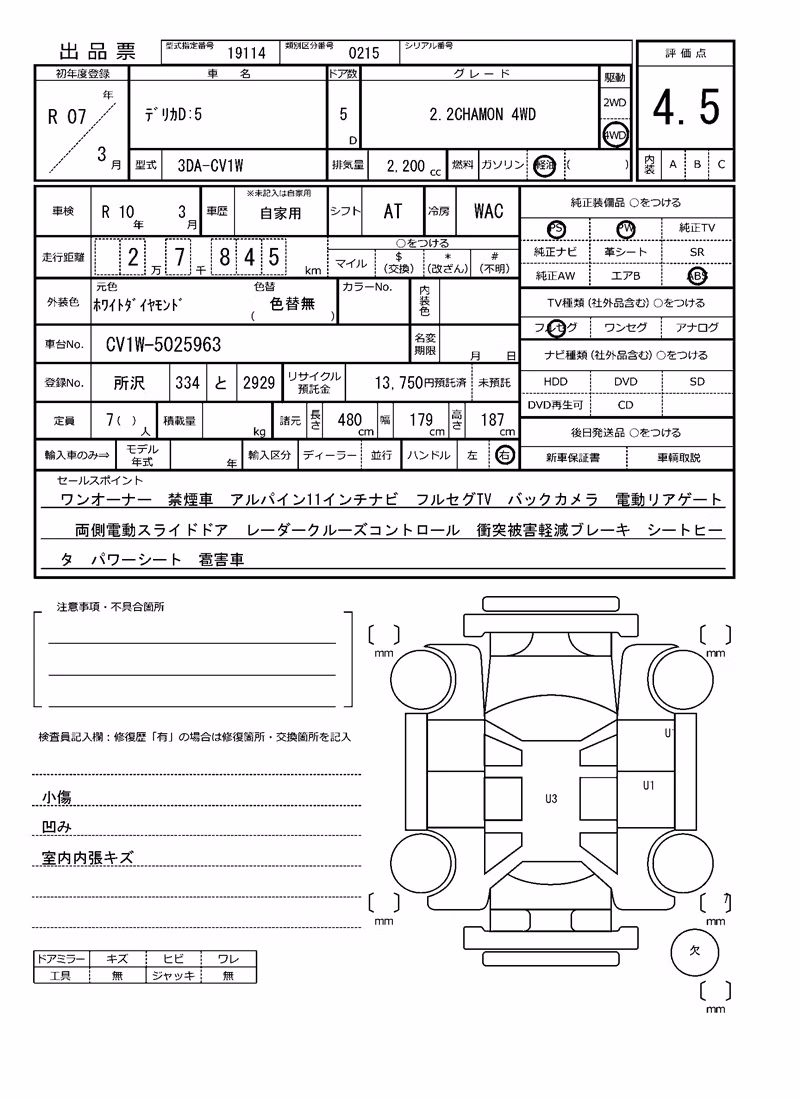 出品票 型式指定番号 19114 類別区分番号 0215 シリアル番号
初年度登録 車名 ドア数 グレード 駆動 評価点
R 07 年 3 月 デリカD:5 5 D 2.2CHAMON 4WD 2WD 4WD 4.5
型式 3DA-CV1W 排気量 2,200 cc 燃料 ガソリン 軽油 ( ) 内装 A B C
車検 R 10 年 3 月 車歴 ※未記入は自家用 自家用 シフト AT 冷房 WAC
純正装備品 ○をつける
PS PW 純正TV
走行距離 2 万 7 千 8 4 5 km ○をつける
マイル $ (交換) * (改ざん) # (不明)
純正ナビ 革シート SR
純正AW エアB ABS
外装色 元色 ホワイトダイヤモンド 色替 ( 色替無 ) カラーNo. 内装色
TV種類(社外品含む) ○をつける
フルセグ ワンセグ アナログ
車台No. CV1W-5025963 名変期限 月 日
ナビ種類(社外品含む) ○をつける
登録No. 所沢 334 と 2929 リサイクル預託金 13,750円預託済 未預託
HDD DVD SD
DVD再生可 CD
定員 7( ) 人 積載量 kg 諸元 長さ 480 cm 幅 179 cm 高さ 187 cm
後日発送品 ○をつける
輸入車のみ⇒ モデル年式 年 輸入区分 ディーラー 並行 ハンドル 左 右
新車保証書 車輌取説
セールスポイント
ワンオーナー 禁煙車 アルパイン11インチナビ フルセグTV バックカメラ 電動リアゲート
両側電動スライドドア レーダークルーズコントロール 衝突被害軽減ブレーキ シートヒー
タ パワーシート 雹害車
注意事項・不具合箇所
mm mm
検査員記入欄：修復歴「有」の場合は修復箇所・交換箇所を記入
U1
U1
U3
小傷
凹み
室内内張キズ
mm 7 mm
欠
mm
ドアミラー キズ ヒビ ワレ
工具 無 ジャッキ 無